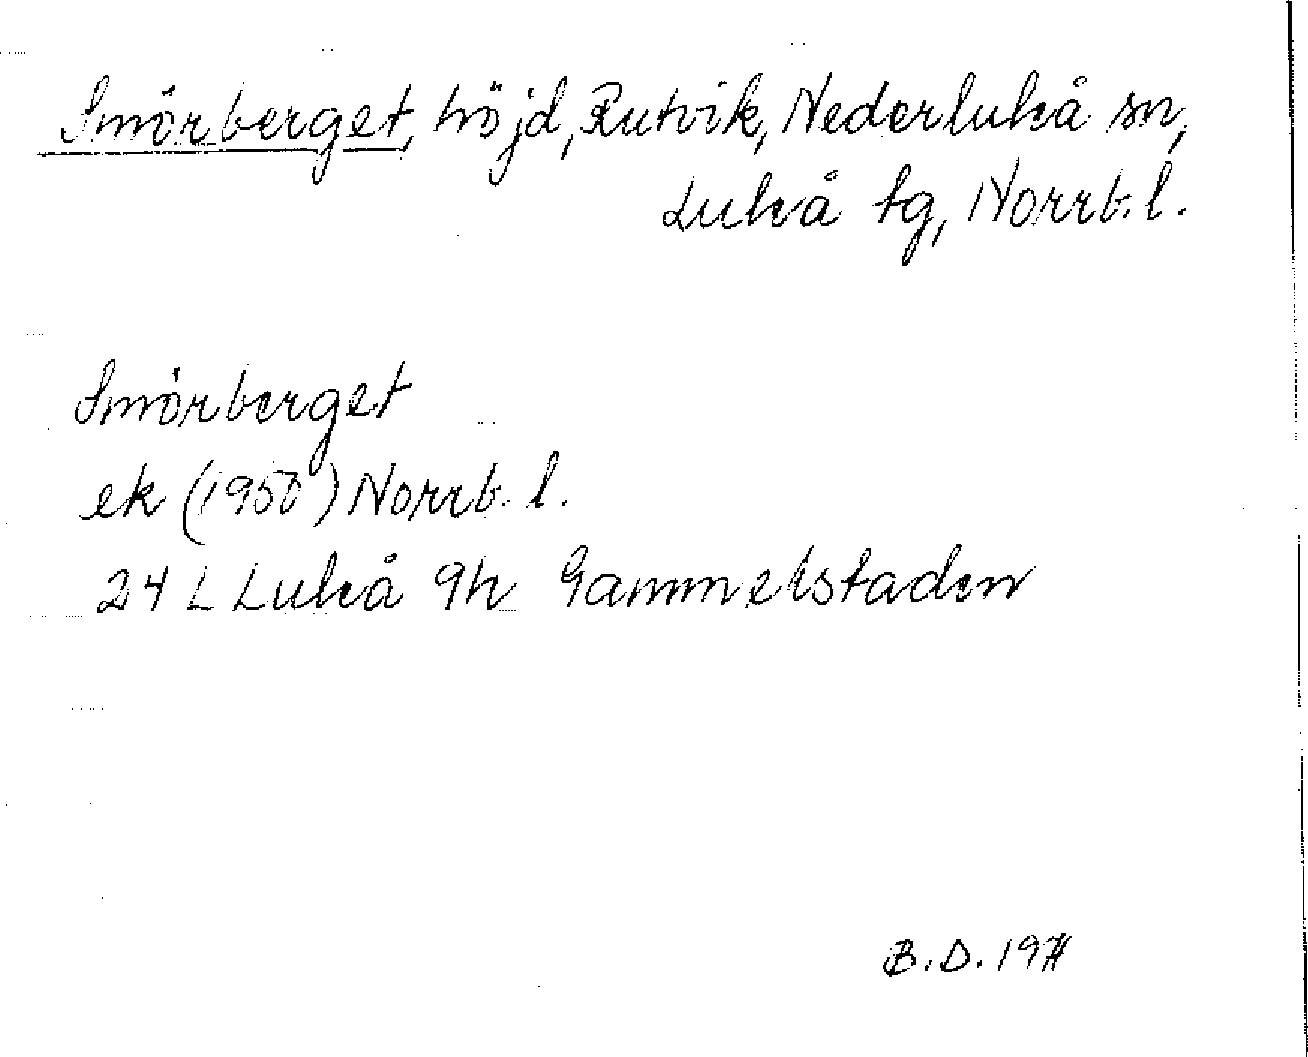 Smörberget, höjd, Rutvik, Nederluleå sn,
Luleå tg, Norrb. l.
Smörberget
ek (1950) Norrb. l.
24 L Luleå 9h Gammelstaden
B.D.